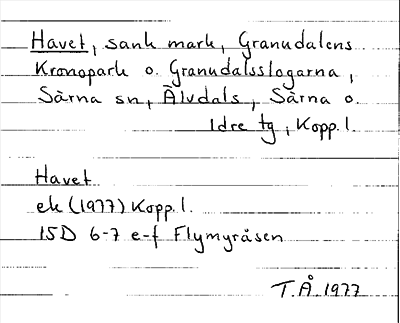 Havet, sank mark, Granudalens
Kronopark o. Granudalsslogarna,
Särna sn, Älvdals, Särna o.
Idre tg, Kopp. l.
Havet
ek (1977) Kopp. l.
15D 6-7 e-f Flymyråsen
T.Å. 1977